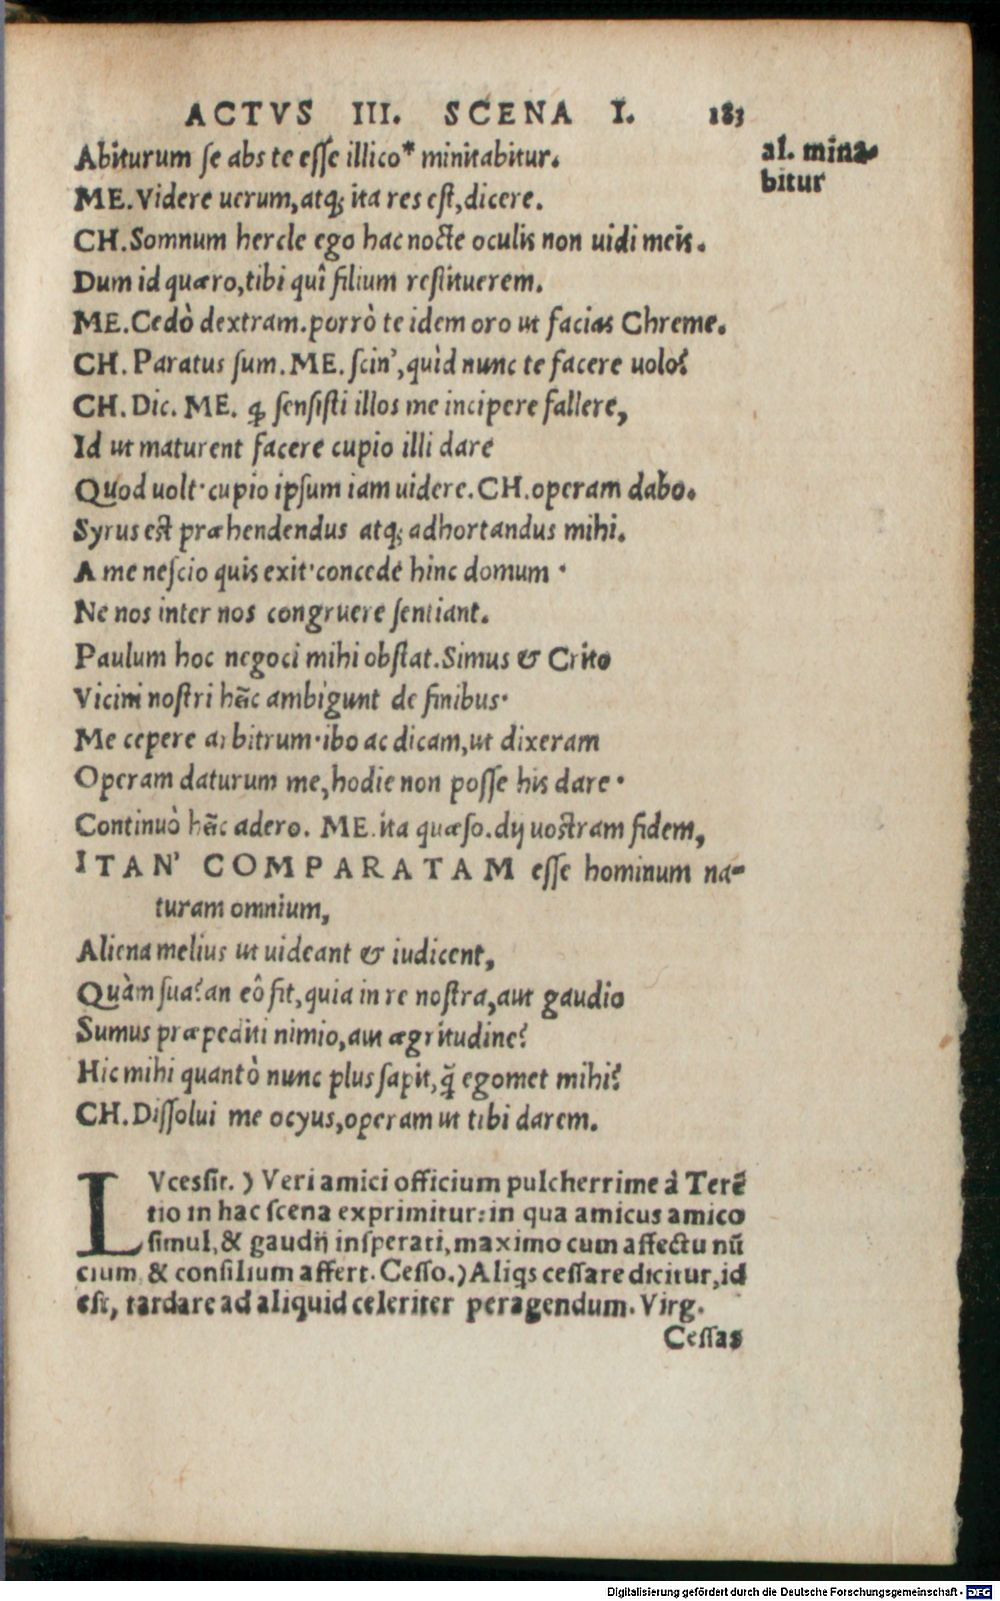 ACTVS III. SCENA I. 183
Abiturum ſe abs te eſſe illico* minitabitur.
al. mina-
bitur
ME. Videre uerum, atq; ita res eſt, dicere.
CH. Somnum hercle ego hac nocte oculis non uidi meis.
Dum id quæro, tibi quî filium reſtituerem.
ME. Cedò dextram. porrò te idem oro ut facias Chreme.
CH. Paratus ſum. ME. ſcin', quìd nunc te facere uolo?
CH. Dic. ME. ꝙ ſenſiſti illos me incipere fallere,
Id ut maturent facere cupio illi dare
Quod uolt· cupio ipſum iam uidere. CH. operam dabo.
Syrus est præhendendus atq; adhortandus mihi.
A me neſcio quis exit· concede hinc domum ·
Ne nos inter nos congruere ſentiant.
Paulum hoc negoci mihi obſtat. Simus & Crito
Vicini noſtri hĩc ambigunt de finibus·
Me cepere arbitrum· ibo ac dicam, ut dixeram
Operam daturum me, hodie non poſſe his dare ·
Continuò hĩc adero. ME. ita quæſo. dij uoſtram fidem,
ITAN' COMPARATAM eſſe hominum na-
turam omnium,
Aliena melius ut uideant & iudicent,
Quàm ſua? an eô fit, quia in re noſtra, aut gaudio
Sumus præpediti nimio, aut ægritudine?
Hic mihi quantò nunc plus ſapit, q̃ egomet mihi?
CH. Diſſolui me ocyus, operam ut tibi darem.
LVceſsit. ) Veri amici officium pulcherrime à Terẽ
tio in hac ſcena exprimitur: in qua amicus amico
ſimul, & gaudij inſperati, maximo cum affectu nũ
cium, & conſilium affert. Ceſſo.) Aliqs ceſſare dicitur, id
eſt, tardare ad aliquid celeriter peragendum. Virg.
Ceſſas
Digitalisierung gefördert durch die Deutsche Forschungsgemeinschaft - DFG